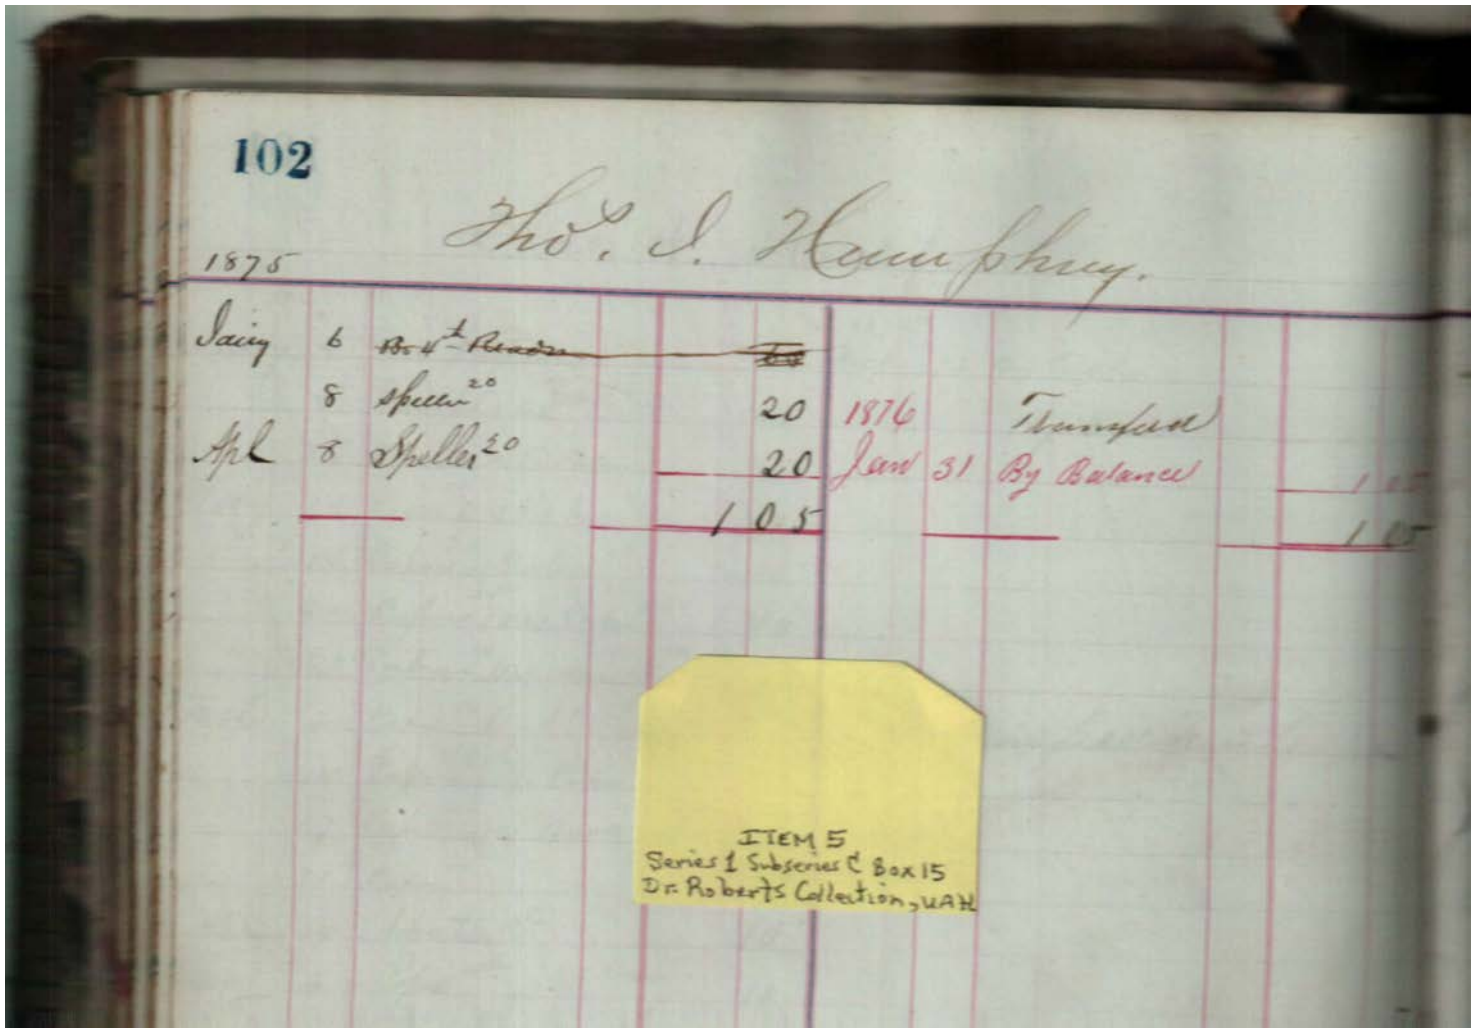 102
Thos. I. Humphrey.
1875
6 4th
8 20 20
Apl 8 Speller 20 20
105
1876 Transferd
Jan 31 By Balance 1 05
1 05
ITEM 5
Series 1 Subseries C Box 15
Dr. Roberts Collection, UAH